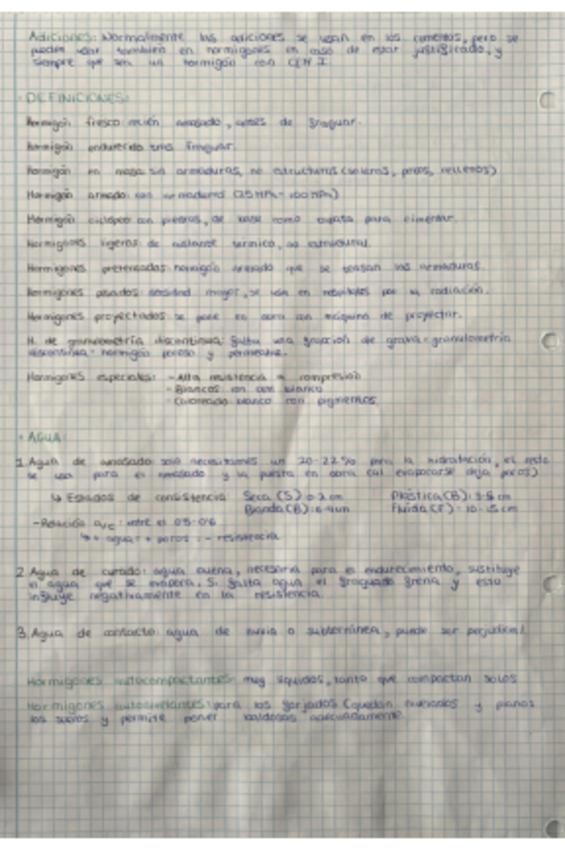 Adiciones: Normalmente las adiciones se usan en los cementos, pero se
pueden usar también en hormigones en caso de estar justificado, y
siempre que sea un hormigón con CEM I.
• DEFINICIONES:
Hormigón fresco: recién amasado, antes de fraguar.
Hormigón endurecido: tras fraguar.
Hormigón en masa: sin armaduras, no estructuras (soleras, pozos, rellenos)
Hormigón armado: con armaduras (25 MPa - 100 MPa)
Hormigón ciclópeo: con piedras, de base como zapata para cimentar.
Hormigones ligeros: de aislante térmico, no estructural.
Hormigones pretensados: hormigón armado que se tensan las armaduras.
Hormigones pesados: densidad mayor, se usa en por su radiación.
Hormigones proyectados: se pone en obra con máquina de proyectar.
H. de granulometría discontinua: falta una fracción de grava = granulometría
discontinua = hormigón poroso y permeable.
Hormigones especiales: - Alta resistencia a compresión
- Blancos con cem blanco
- Coloreado blanco con pigmentos
• AGUA:
1. Agua de amasado: solo necesitamos un 20-22% para la hidratación, el resto
se usa para el amasado y la puesta en obra (al evaporarse deja poros)
↳ Estados de consistencia: Seca (S): 0-2 cm Plástica (P): 3-5 cm
Blanda (B): 6-9 cm Fluida (F): 10-15 cm
- Relación a/c: entre el 0'5-0'6
↳ + agua = + poros = - resistencia
2. Agua de curado: agua buena, necesaria para el endurecimiento, sustituye
el agua que se evapora. Si falta agua el fraguado frena y esto
influye negativamente en la resistencia.
3. Agua de contacto: agua de lluvia o subterránea, puede ser perjudicial
Hormigones autocompactantes: muy líquidos, tanto que compactan solos
Hormigones autonivelantes: para los forjados (quedan nivelados y planos
los suelos y permite poner baldosas adecuadamente